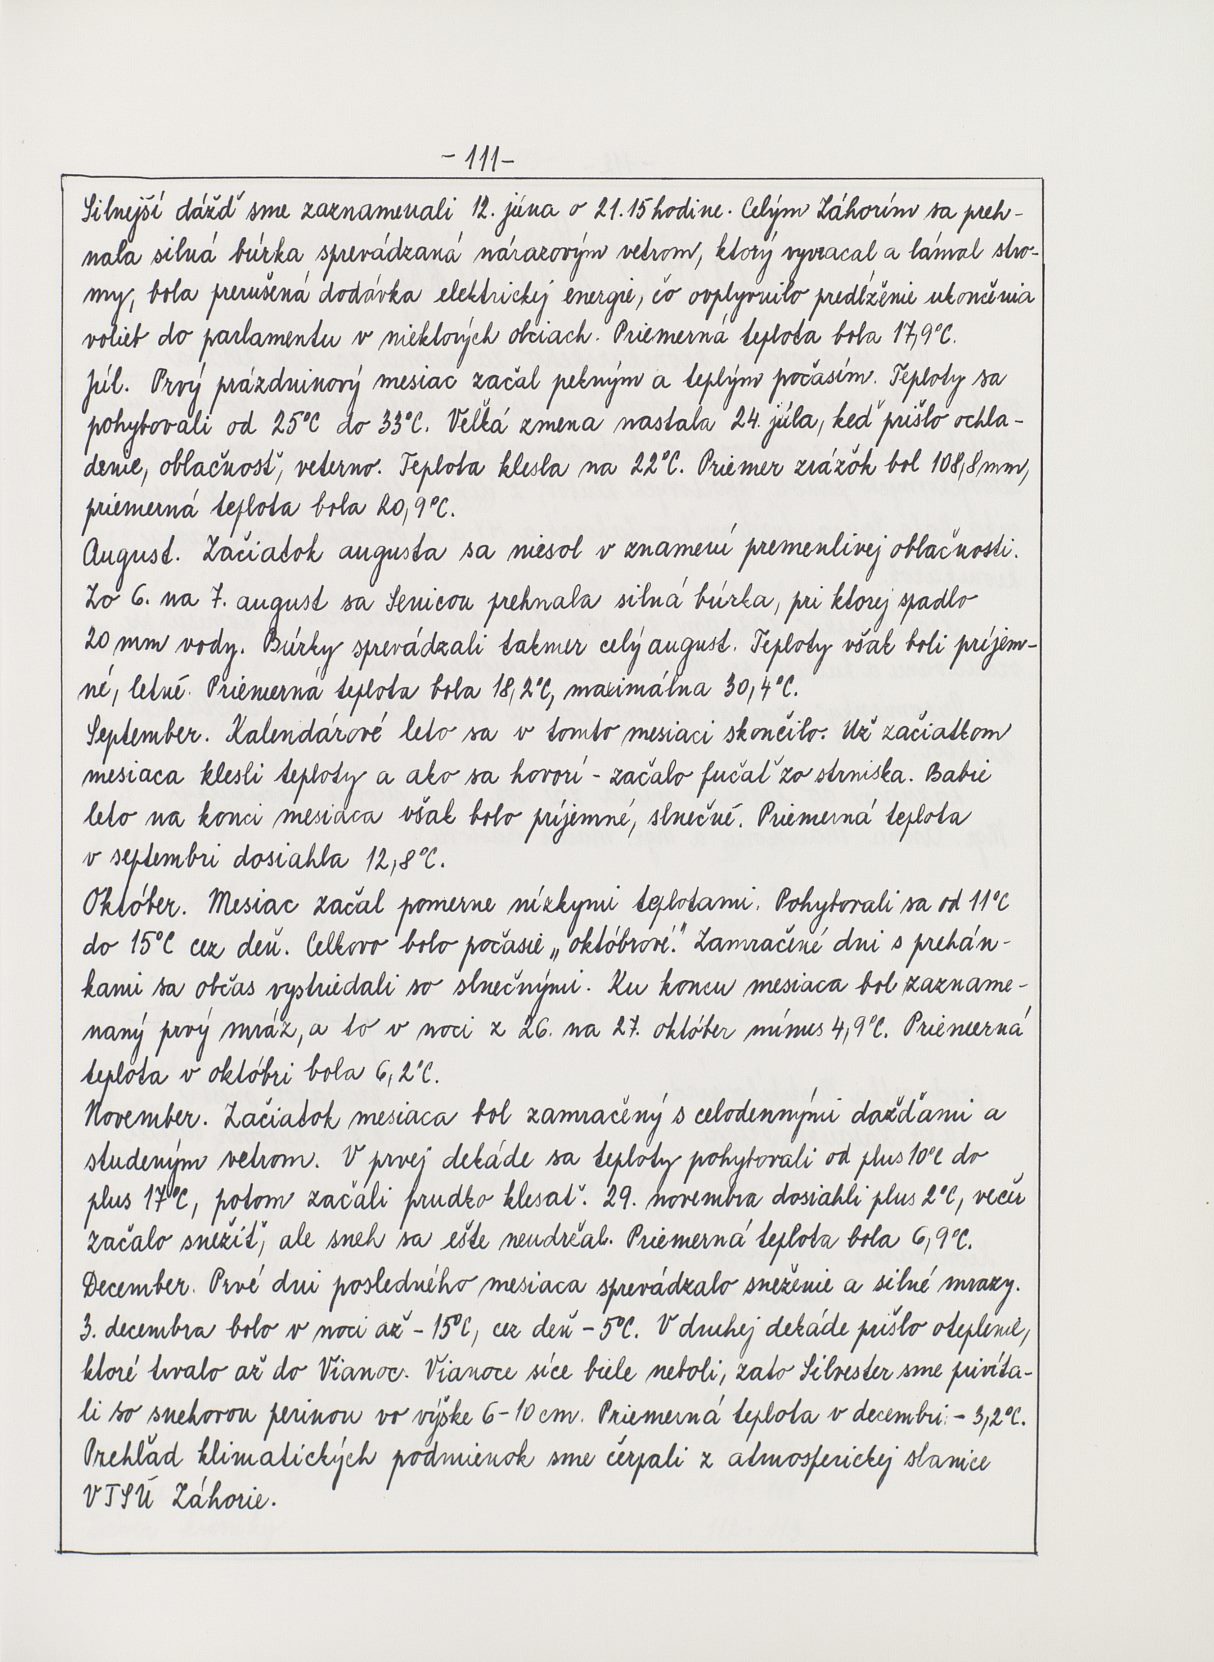 - 111 -
Silnejší dážď sme zaznamenali 12. júna o 21.15 hodine. Celým Záhorím sa preh-
nala silná búrka sprevádzaná nárazovým vetrom, ktorý vyvracal a lámal stro-
my, bola prerušená dodávka elektrickej energie, čo ovplyvnilo predĺženie ukončenia
volieb do parlamentu v niektorých obciach. Priemerná teplota bola 17,9°C.
Júl. Prvý prázdninový mesiac začal pekným a teplým počasím. Teploty sa
pohybovali od 25°C do 33°C. Veľká zmena nastala 24. júla, keď prišlo ochla-
denie, oblačnosť, veterno. Teplota klesla na 22°C. Priemer zrážok bol 108,8 mm,
priemerná teplota bola 20,9°C.
August. Začiatok augusta sa niesol v znamení premenlivej oblačnosti.
Zo 6. na 7. august sa Senicou prehnala silná búrka, pri ktorej spadlo
20 mm vody. Búrky sprevádzali takmer celý august. Teploty však boli príjem-
né, letné. Priemerná teplota bola 18,2°C, maximálna 30,4°C.
September. Kalendárové leto sa v tomto mesiaci skončilo. Už začiatkom
mesiaca klesli teploty a ako sa hovorí - začalo fučať zo strniska. Babie
leto na konci mesiaca však bolo príjemné, slnečné. Priemerná teplota
v septembri dosiahla 12,8°C.
Október. Mesiac začal pomerne nízkymi teplotami. Pohybovali sa od 11°C
do 15°C cez deň. Celkovo bolo počasie „októbrové." Zamračené dni s prehán-
kami sa občas vystriedali so slnečnými. Ku koncu mesiaca bol zazname-
naný prvý mráz, a to v noci z 26. na 27. október mínus 4,9°C. Priemerná
teplota v októbri bola 6,2°C.
November. Začiatok mesiaca bol zamračený s celodennými dažďami a
studeným vetrom. V prvej dekáde sa teploty pohybovali od plus 10°C do
plus 17°C, potom začali prudko klesať. 29. novembra dosiahli plus 2°C, večer
začalo snežiť, ale sneh sa ešte neudržal. Priemerná teplota bola 6,9°C.
December. Prvé dni posledného mesiaca sprevádzalo sneženie a silné mrazy.
3. decembra bolo v noci až - 15°C, cez deň - 5°C. V druhej dekáde prišlo oteplenie,
ktoré trvalo až do Vianoc. Vianoce síce biele neboli, zato Silvester sme privíta-
li so snehovou perinou vo výške 6-10 cm. Priemerná teplota v decembri: - 3,2°C.
Prehľad klimatických podmienok sme čerpali z atmosferickej stanice
VTSÚ Záhorie.